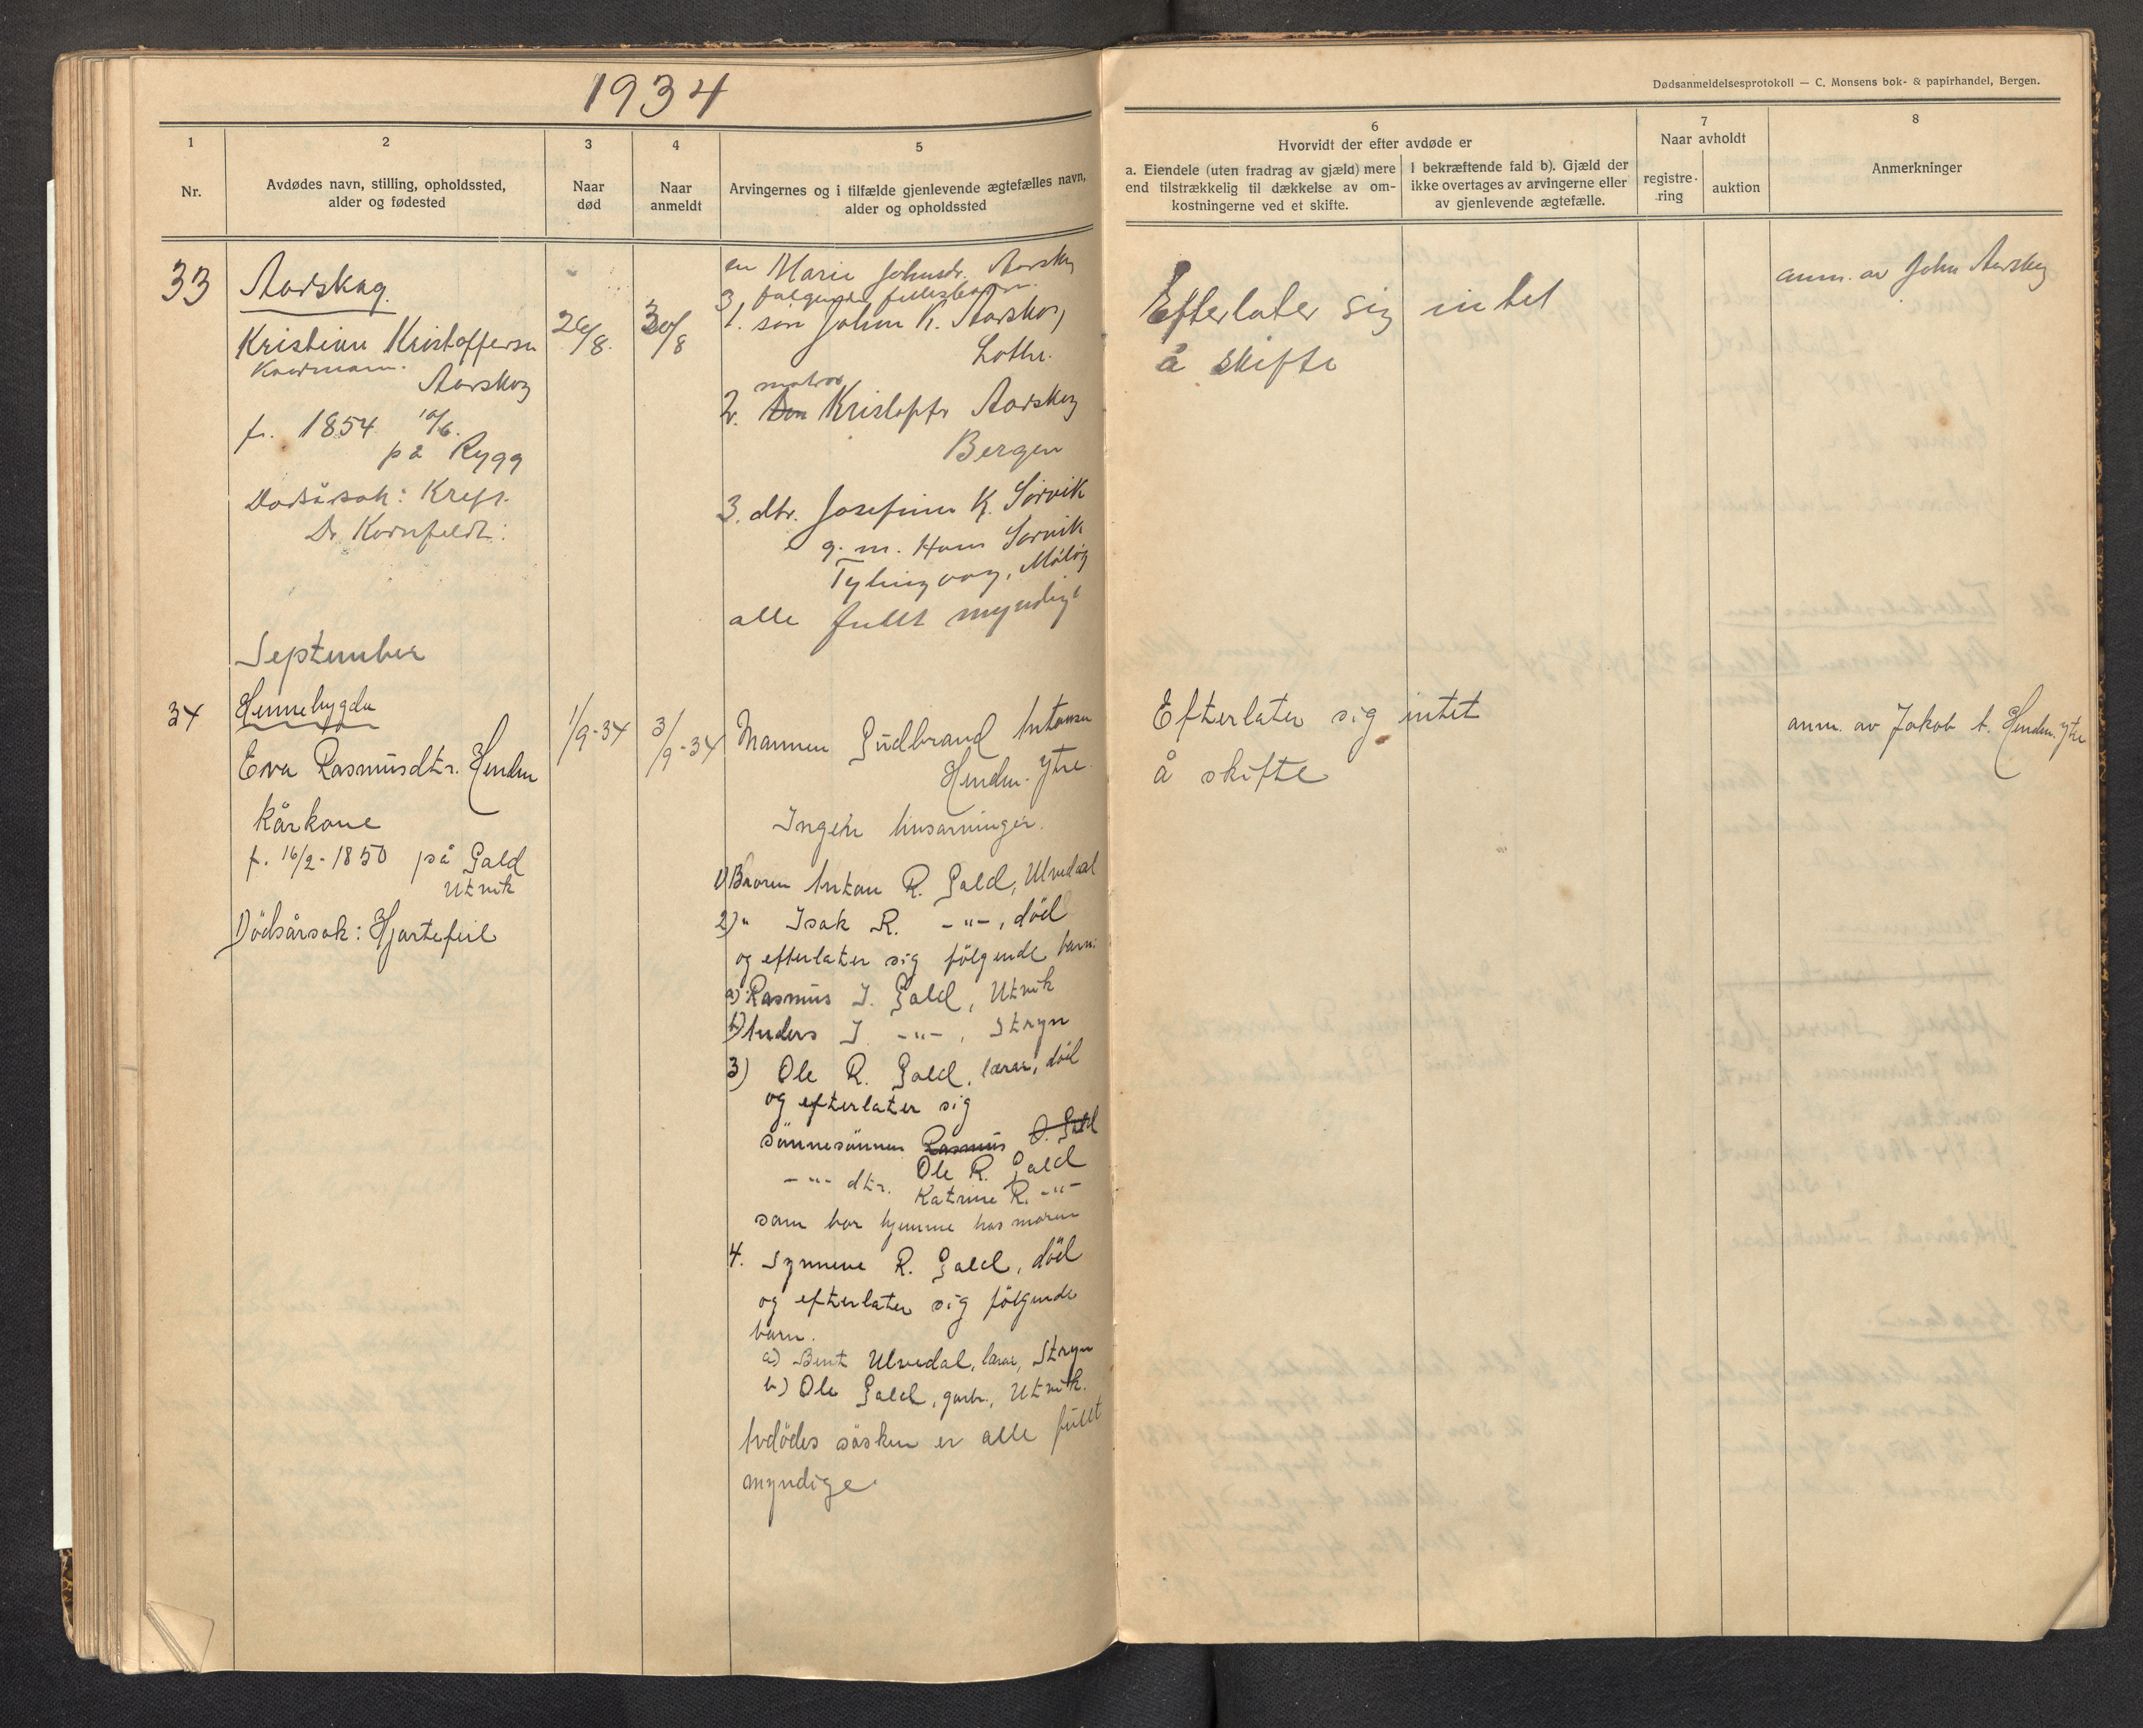 1934
Dødsanmeldelsesprotokoll — C. Monsens bok- & papirhandel, Bergen.
1
2
3
4
5
6
7
8
Nr.
Avdødes navn, stilling, opholdssted,
alder og fødested
Naar
død
Naar
anmeldt
Arvingernes og i tilfælde gjenlevende ægtefælles navn,
alder og opholdssted
Hvorvidt der efter avdøde er
a. Eiendele (uten fradrag av gjæld) mere
end tilstrækkelig til dækkelse av om-
kostningerne ved et skifte.
I bekræftende fald b). Gjæld der
ikke overtages av arvingerne eller
av gjenlevende ægtefælle.
Naar avholdt
registre-
ring
auktion
Anmerkninger
33
Aarskog
Kristian Kristoffersen
Kaarmann.
Aarskog
f. 1854 10/6.
på Rygg
Dødsårsak: Kreft.
Dr Kornfeldt:
26/8.
30/8
en Marie Johnsdr. Aarskog
3 følgende fellesbarn.
1. søn Johan K. Aarskog,
Lothe.
matros
2. Kristoffer Aarskog
Bergen
3. dtr. Josefine K. Sørvik
g. m. Hans Sørvik
Måløy
alle fullt myndige
Efterlater sig intet
å skifte
anm. av John Aarskog
September
34
Hennebygda
Eva Rasmusdtr. Henden
kårkone
f. 16/2-1850 på Gald
Utvik
Dödsårsak: Hjartefeil
1/9-34
3/9-34
Mannen Gudbrand Antonsen
Henden ytre.
Ingen livsarvinger.
1) Broren Anton R. Gald, Ulvedal
2) " Isak R. -"-, död
og efterlater sig fölgende barn:
a) Rasmus I. Gald, Utvik
b) Anders I. -"-, Stryn
3) Ole R. Gald, lærar, död
og efterlater sig
sönnesönnen Rasmus O. Gald
Ole R. Gald
-"- dtr. Katrine R. -"-
som bor hjemme hos moren
4. Synneve R. Gald, död
og efterlater sig fölgende
barn.
a) Bent Ulvedal, lærar, Stryn
b) Ole Gald, garb., Utvik.
Avdödes sösken er alle fullt
myndige.
Efterlater sig intet
å skifte
anm. av Jakob A. Henden ytre